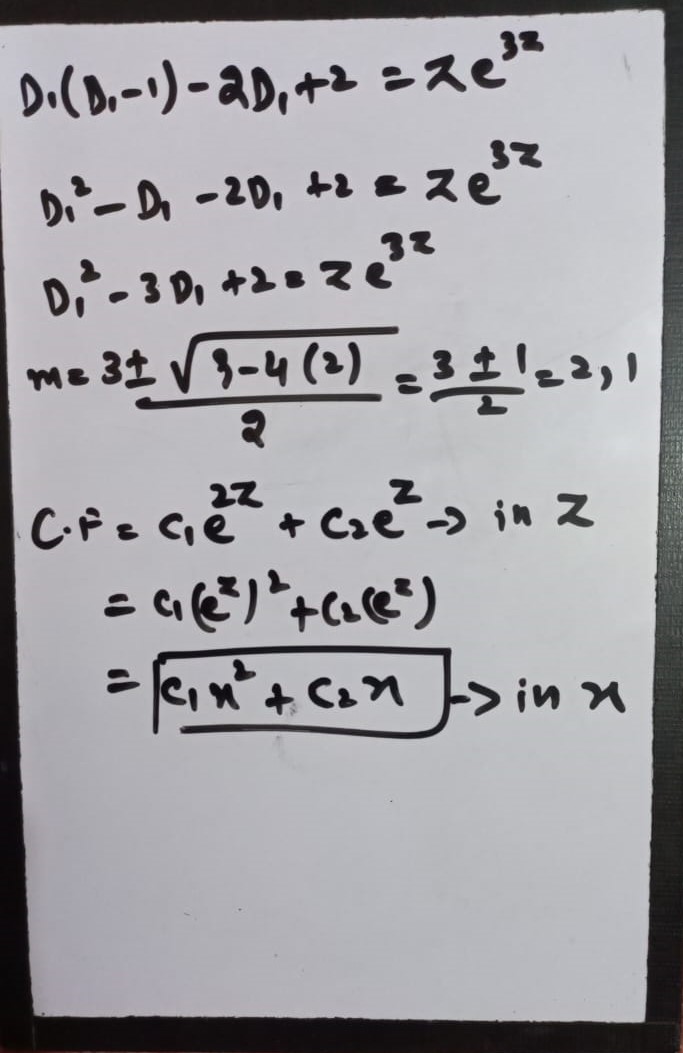 D₁(D₁-1)-2D₁+2 = ze^{3z}
D₁²-D₁-2D₁+2 = ze^{3z}
D₁²-3D₁+2 = ze^{3z}
m = 3±√9-4(2) / 2 = 3±1 / 2 = 2, 1
C.F = c₁e^{2z} + c₂e^{z} -> in z
= c₁(e^{z})² + c₂(e^{z})
= c₁x² + c₂x -> in x